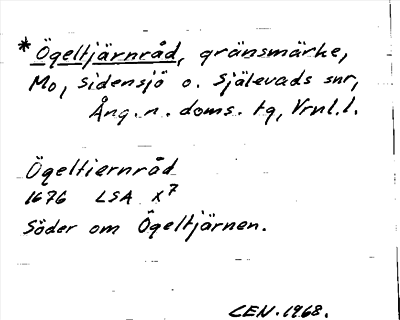 * Ögeltjärnråd, gränsmärke,
Mo, Sidensjö o. Själevads snr,
Ång. n. doms. tg, Vrnl.l.
Ögeltiernråd
1676 LSA X7
Söder om Ögeltjärnen.
CEN. 1968.